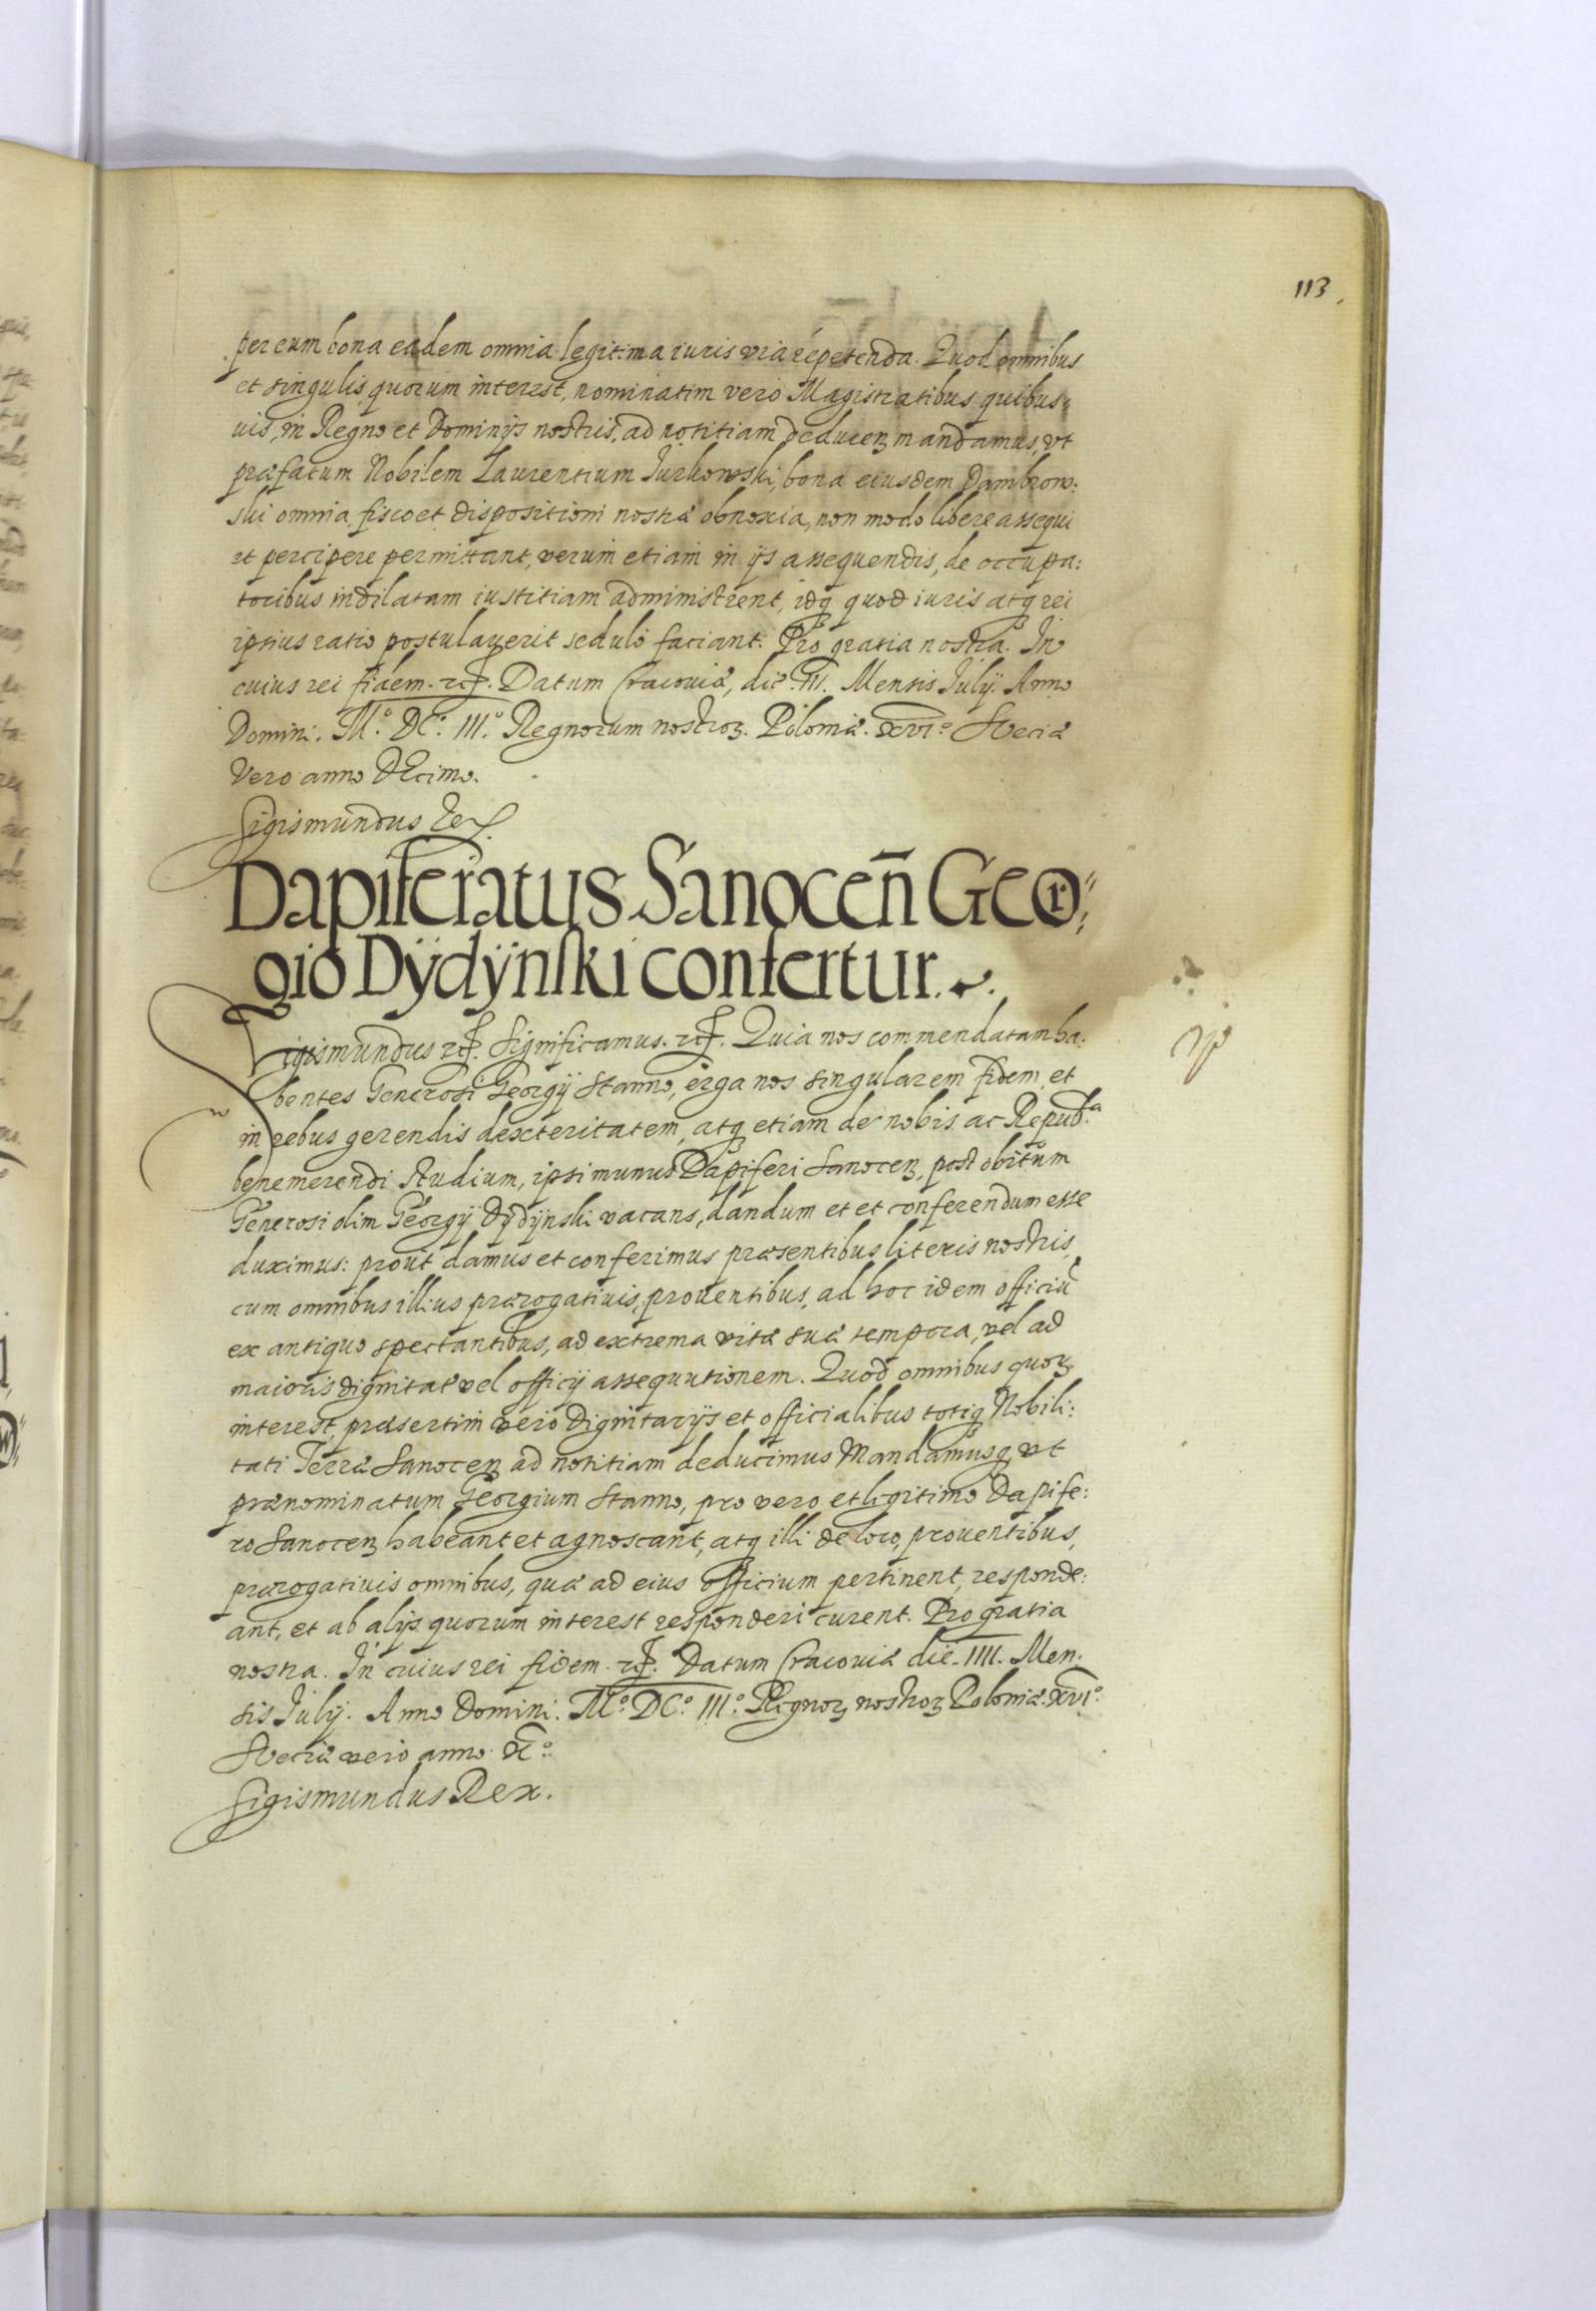 113
per eum bona eadem omnia legitima iuris via repetenda. Quod omnibus
et singulis quorum interest, nominatim vero Magistratibus quibus„
uis, in Regno et Dominijs nostris, ad notitiam deducenꝫ mandamus, vt
præfatum Nobilem Laurentium Jurkowski, bona eiusdem Dambrow:
ski omnia fisco et dispositioni nostræ obnoxia, non modo libere assequi
et percipere permittant, verum etiam in ijs assequendis, de occupa:
toribus indilatam iustitiam administrent, idqꝫ quod iuris atqꝫ rei
ipsius ratio postulauerit sedulo faciant. Pro gratia nostra. In
cuius rei fidem. etc. Datum Cracouiæ, die. III. Mensis Julij. Anno
Domini. M.º DC.º III.º Regnorum nostroꝝ. Poloniæ. XVI.º Sveciæ
Vero anno Decimo.
Sigismundus Rex.
Dapiferatus Sanocen̄ Geor„
gio Dÿdÿnski confertur.
Sigismundus etc. Significamus. etc. Quia nos commendatam ha:
bentes Generosi Georgij Stanno, erga nos singularem fidem, et
in rebus gerendis dexteritatem, atqꝫ etiam de nobis ac Repub.ca
benemerendi studium, ipsi munus Dapiferi Sanocenꝫ, post obitum
Generosi olim Georgij Dÿdÿnski vacans, dandum et et conferendum esse
duximus: prout damus et conferimus præsentibus literis nostris,
cum omnibus illius prærogatiuis, prouentibus, ad hoc idem officiū
ex antiquo spectantibus, ad extrema vitæ suæ tempora, vel ad
maioris dignitat vel officij assequutionem. Quod omnibus quoꝝ
interest, præsertim vero Dignitarijs et officialibus totiqꝫ Nobili:
tati Terræ Sanocenꝫ ad notitiam deducimus Mandamusqꝫ, vt
prænominatum Georgium Stanno, pro vero et ligitimo Dapife:
ro Sanocenꝫ habeant et agnoscant, atqꝫ illi de loco, prouentibus,
prærogatiuis omnibus, quæ ad eius officium pertinent, responde:
ant, et ab alijs quorum interest responderi curent. Pro gratia
nostra. In cuius rei fidem. etc. Datum Cracouiæ die. IIII. Men.
sis Julij. Anno Domini. M.º DC.º III.º Regnoꝝ nostroꝝ Poloniæ. XVI.º
Sveciæ vero anno X.º
Sigismundus Rex.